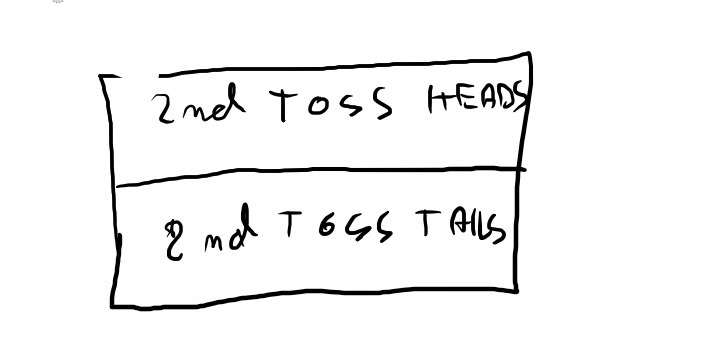 2nd TOSS HEADS
2nd TOSS TAILS